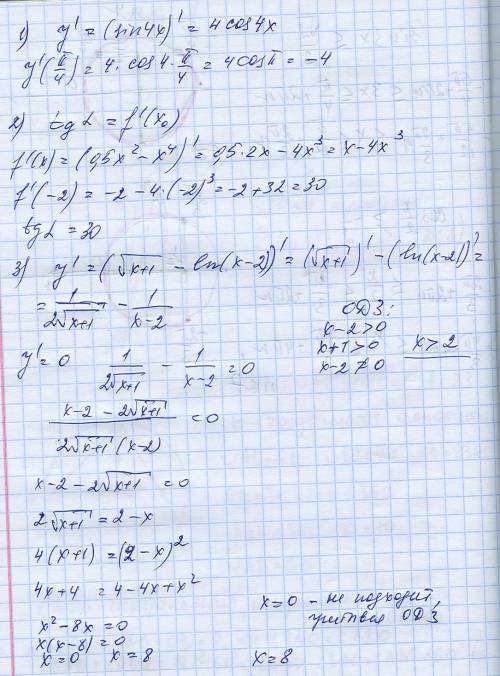 1) y' = (sin4x)' = 4cos4x
y'(π/4) = 4·cos4·π/4 = 4cosπ = -4
2) tg L = f'(x₀)
f'(x) = (0,5x² - x⁴)' = 0,5·2x - 4x³ = x - 4x³
f'(-2) = -2 - 4·(-2)³ = -2 + 32 = 30
tg L = 30
3) y' = (√(x+1) - ln(x-2))' = (√(x+1))' - (ln(x-2))' =
= 1/(2√(x+1)) - 1/(x-2)
ОДЗ:
x-2>0
x+1>0
x-2≠0
x>2
y' = 0 1/(2√(x+1)) - 1/(x-2) = 0
(x-2-2√(x+1))/(2√(x+1)(x-2)) = 0
x-2-2√(x+1) = 0
2√(x+1) = 2-x
4(x+1) = (2-x)²
4x+4 = 4-4x+x²
x²-8x=0
x(x-8)=0
x=0 x=8
x=0 - не подходит,
учитывая ОДЗ
x=8